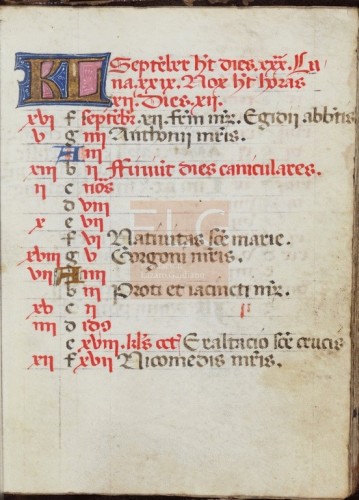 KL Septēber ht dies. xxx. Lu
na. xxix. Nox ht horas
xii. Dies. xii.
xvi f septēbr. xii. fr̄m mr̄. Egidii abb̄tis
v g iiii Anthonii mr̄is.
A iii
xiii b ii Finiūt dies caniculares.
ii c nōs
d viii
x e vii
f vi Natiuitas scē marie.
xviii g v Gorgoni mr̄is.
vii A iiii
b iii Proti et iacincti mr̄.
xv c ii
iiii d id9
e xviii. kl̄s Exaltacio scē crucis
xii f xvii Nicomedis mr̄is.